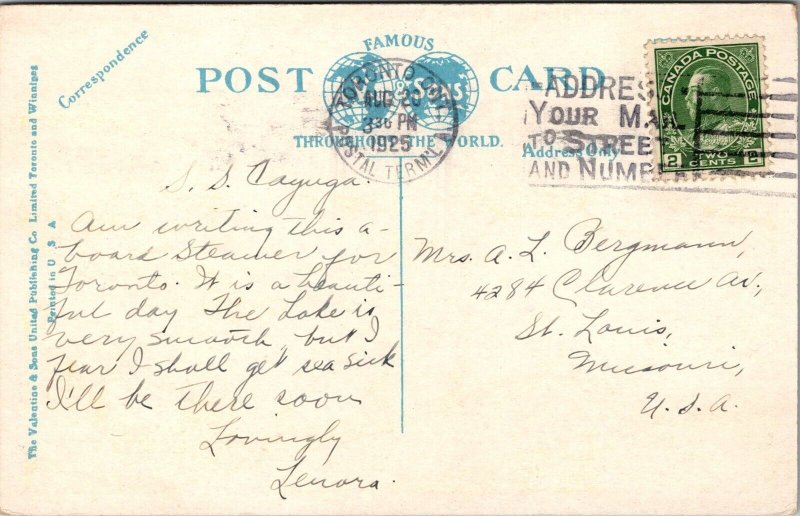 Correspondence
FAMOUS
POST CARD
THROUGHOUT THE WORLD.
Address Only
The Valentine & Sons United Publishing Co Limited Toronto and Winnipeg
Printed in U S A
TORONTO
AUG 28
3 30 PM
1925
POSTAL TERM'L
ADDRES
YOUR MAIL
TO STREE
AND NUMBE
CANADA POSTAGE
2 TWO CENTS 2
S. S. Cayuga.
Am writing this a-
board Steamer for
Toronto. It is a beauti-
ful day The Lake is
very smooth but I
fear I shall get sea sick
I'll be there soon
Lovingly
Lenora.
Mrs. A. L. Bergmann,
4284 Clarence Av.,
St. Louis,
Missouri,
U. S. A.